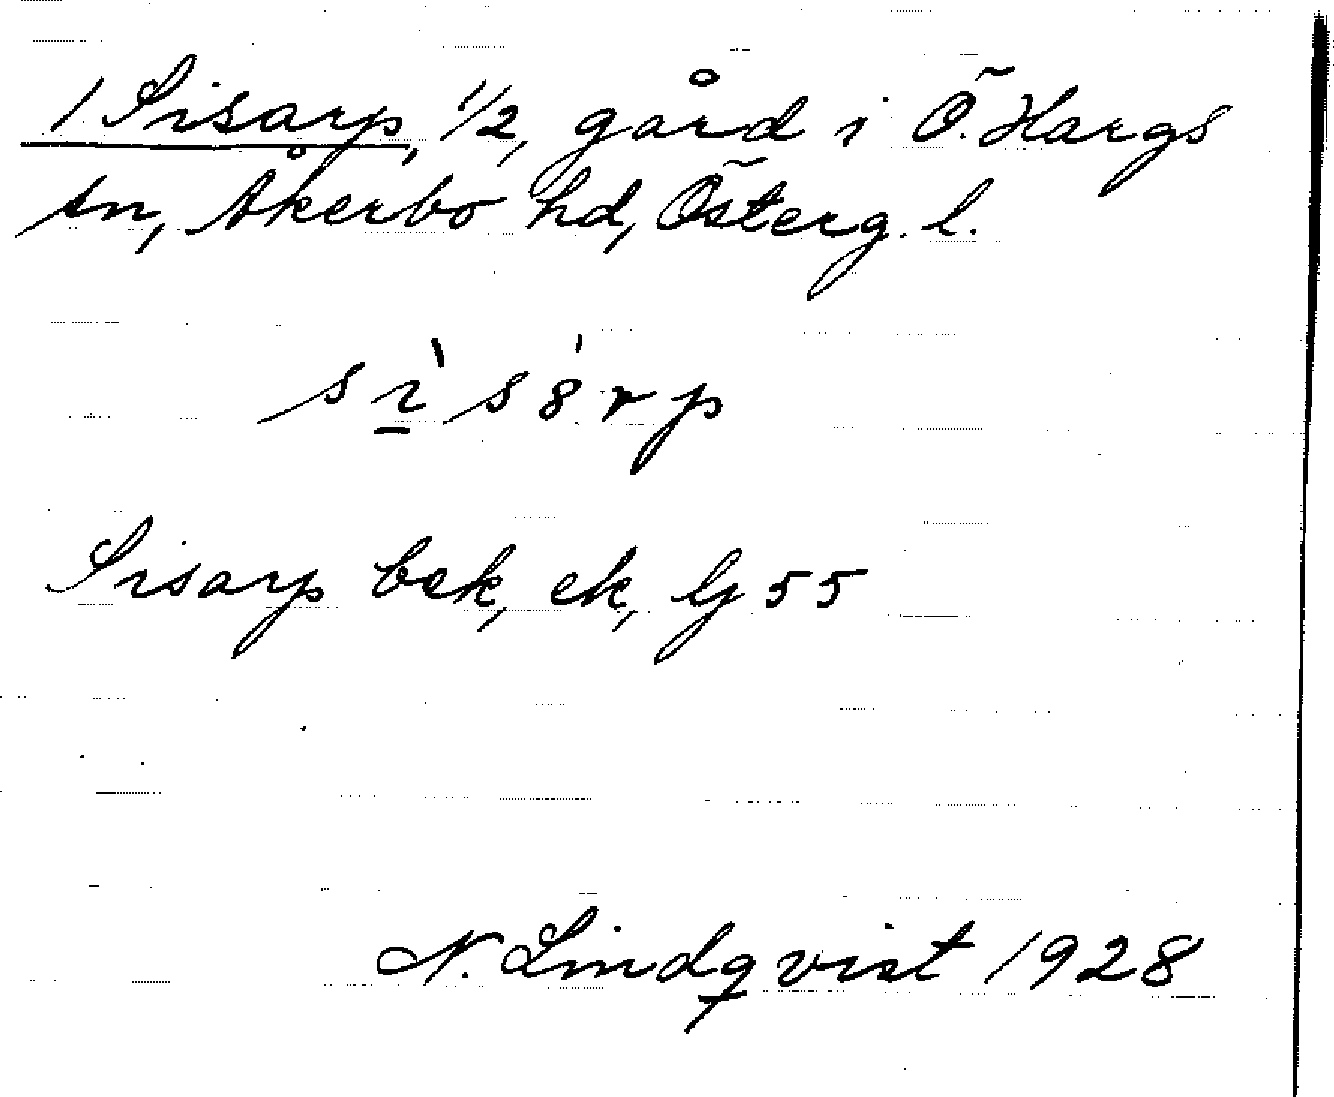 1 Sisarp, 1/2, gård i Ö. Hargs
sn, Åkerbo hd, Österg. l.
sì̱s8́rp
Sisarp bek, ek, lj 55
N. Lindqvist 1928